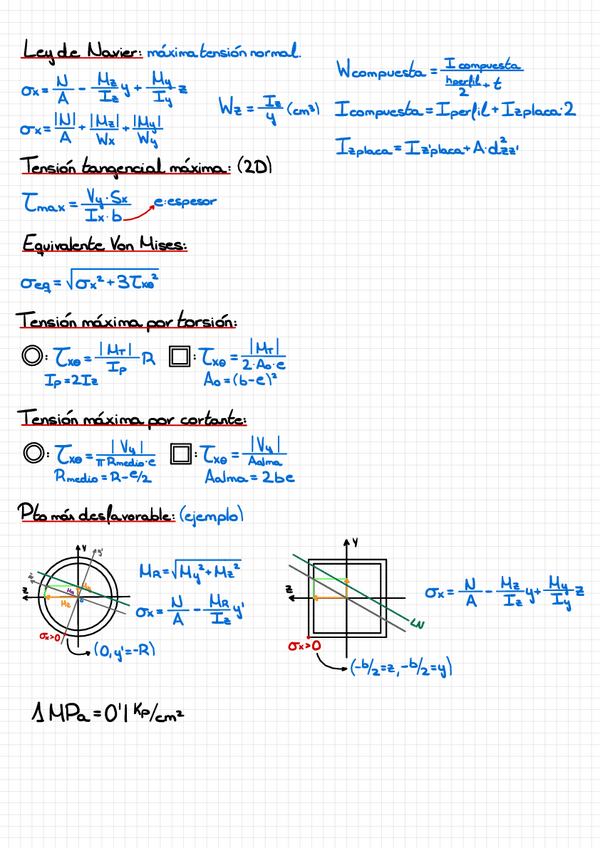 Ley de Navier: máxima tensión normal.
σx = N/A - Mz/Iz y + My/Iy z
σx = |N|/A + |Mz|/Wx + |My|/Wy
Wz = Iz/y (cm³)
Wcompuesta = I compuesta / (hperfil/2 + t)
Icompuesta = Iperfil + Izplaca·2
Izplaca = Iz'placa + A·d²zz'
Tensión tangencial máxima: (2D)
τmax = Vy·Sx / Ix·b e: espesor
Equivalente Von Mises:
σeq = √(σx² + 3τxθ²)
Tensión máxima por torsión:
: τxθ = |MT|/Ip R
Ip = 2Iz
: τxθ = |MT| / 2·A₀·e
A₀ = (b-e)²
Tensión máxima por cortante:
: τxθ = |Vy| / π Rmedio·e
Rmedio = R - e/2
: τxθ = |Vy| / Aalma
Aalma = 2be
Pto más desfavorable: (ejemplo)
y
y'
z
z'
σx>0
(0, y'=-R)
MR = √(My² + Mz²)
σx = N/A - MR/Iz y'
Y
Z
LN
σx>0
(-b/2=z, -b/2=y)
σx = N/A - Mz/Iz y + My/Iy z
1 MPa = 0'1 Kp/cm²